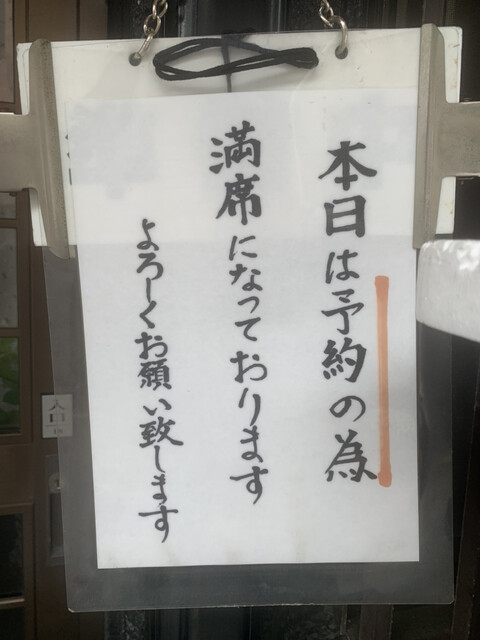 本日は予約の為
満席になっております
よろしくお願い致します